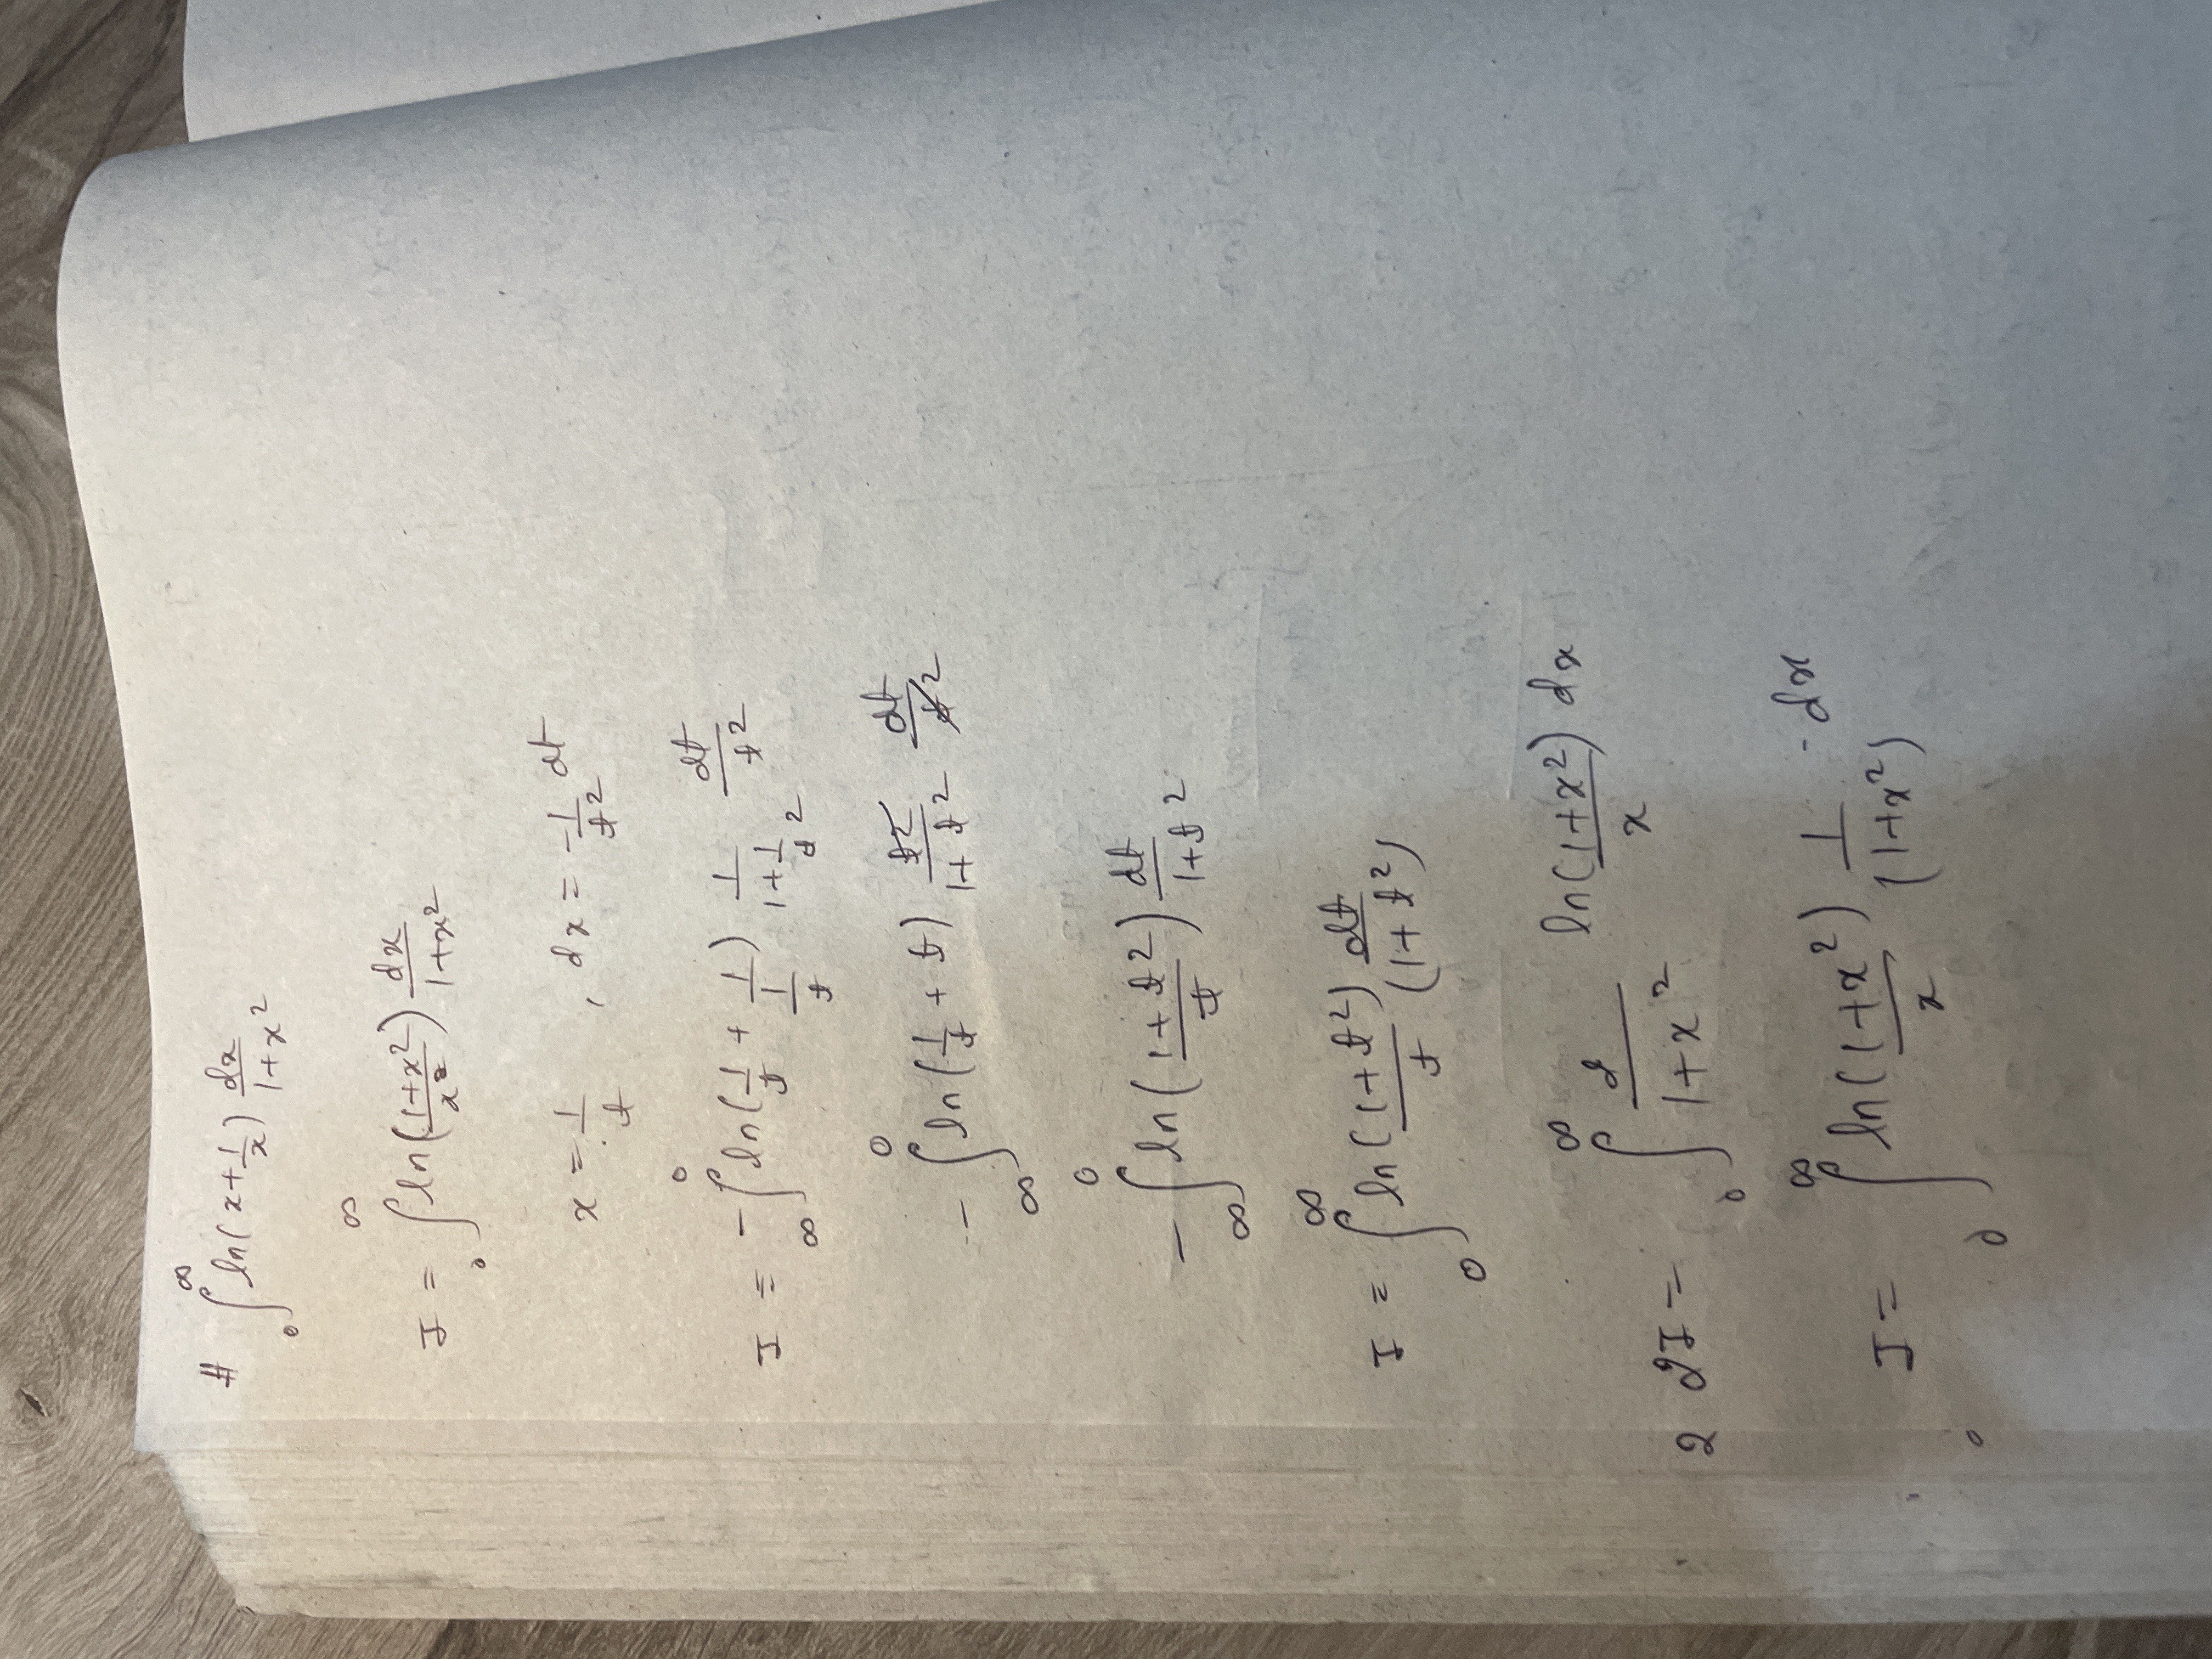 # ∫₀^∞ ln(x+1/x) dx/(1+x²)
I = ∫₀^∞ ln((1+x²)/x) dx/(1+x²)
x = 1/t , dx = -1/t² dt
I = -∫_∞^0 ln(1/t + 1/(1/t)) 1/(1+1/t²) dt/t²
-∫_∞^0 ln(1/t + t) t²/(1+t²) dt/t²
-∫_∞^0 ln((1+t²)/t) dt/(1+t²)
I = ∫₀^∞ ln((1+t²)/t) dt/(1+t²)
2 2I = ∫₀^∞ 2/(1+x²) ln((1+x²)/x) dx
I = ∫₀^∞ ln((1+x²)/x) 1/(1+x²) · dx